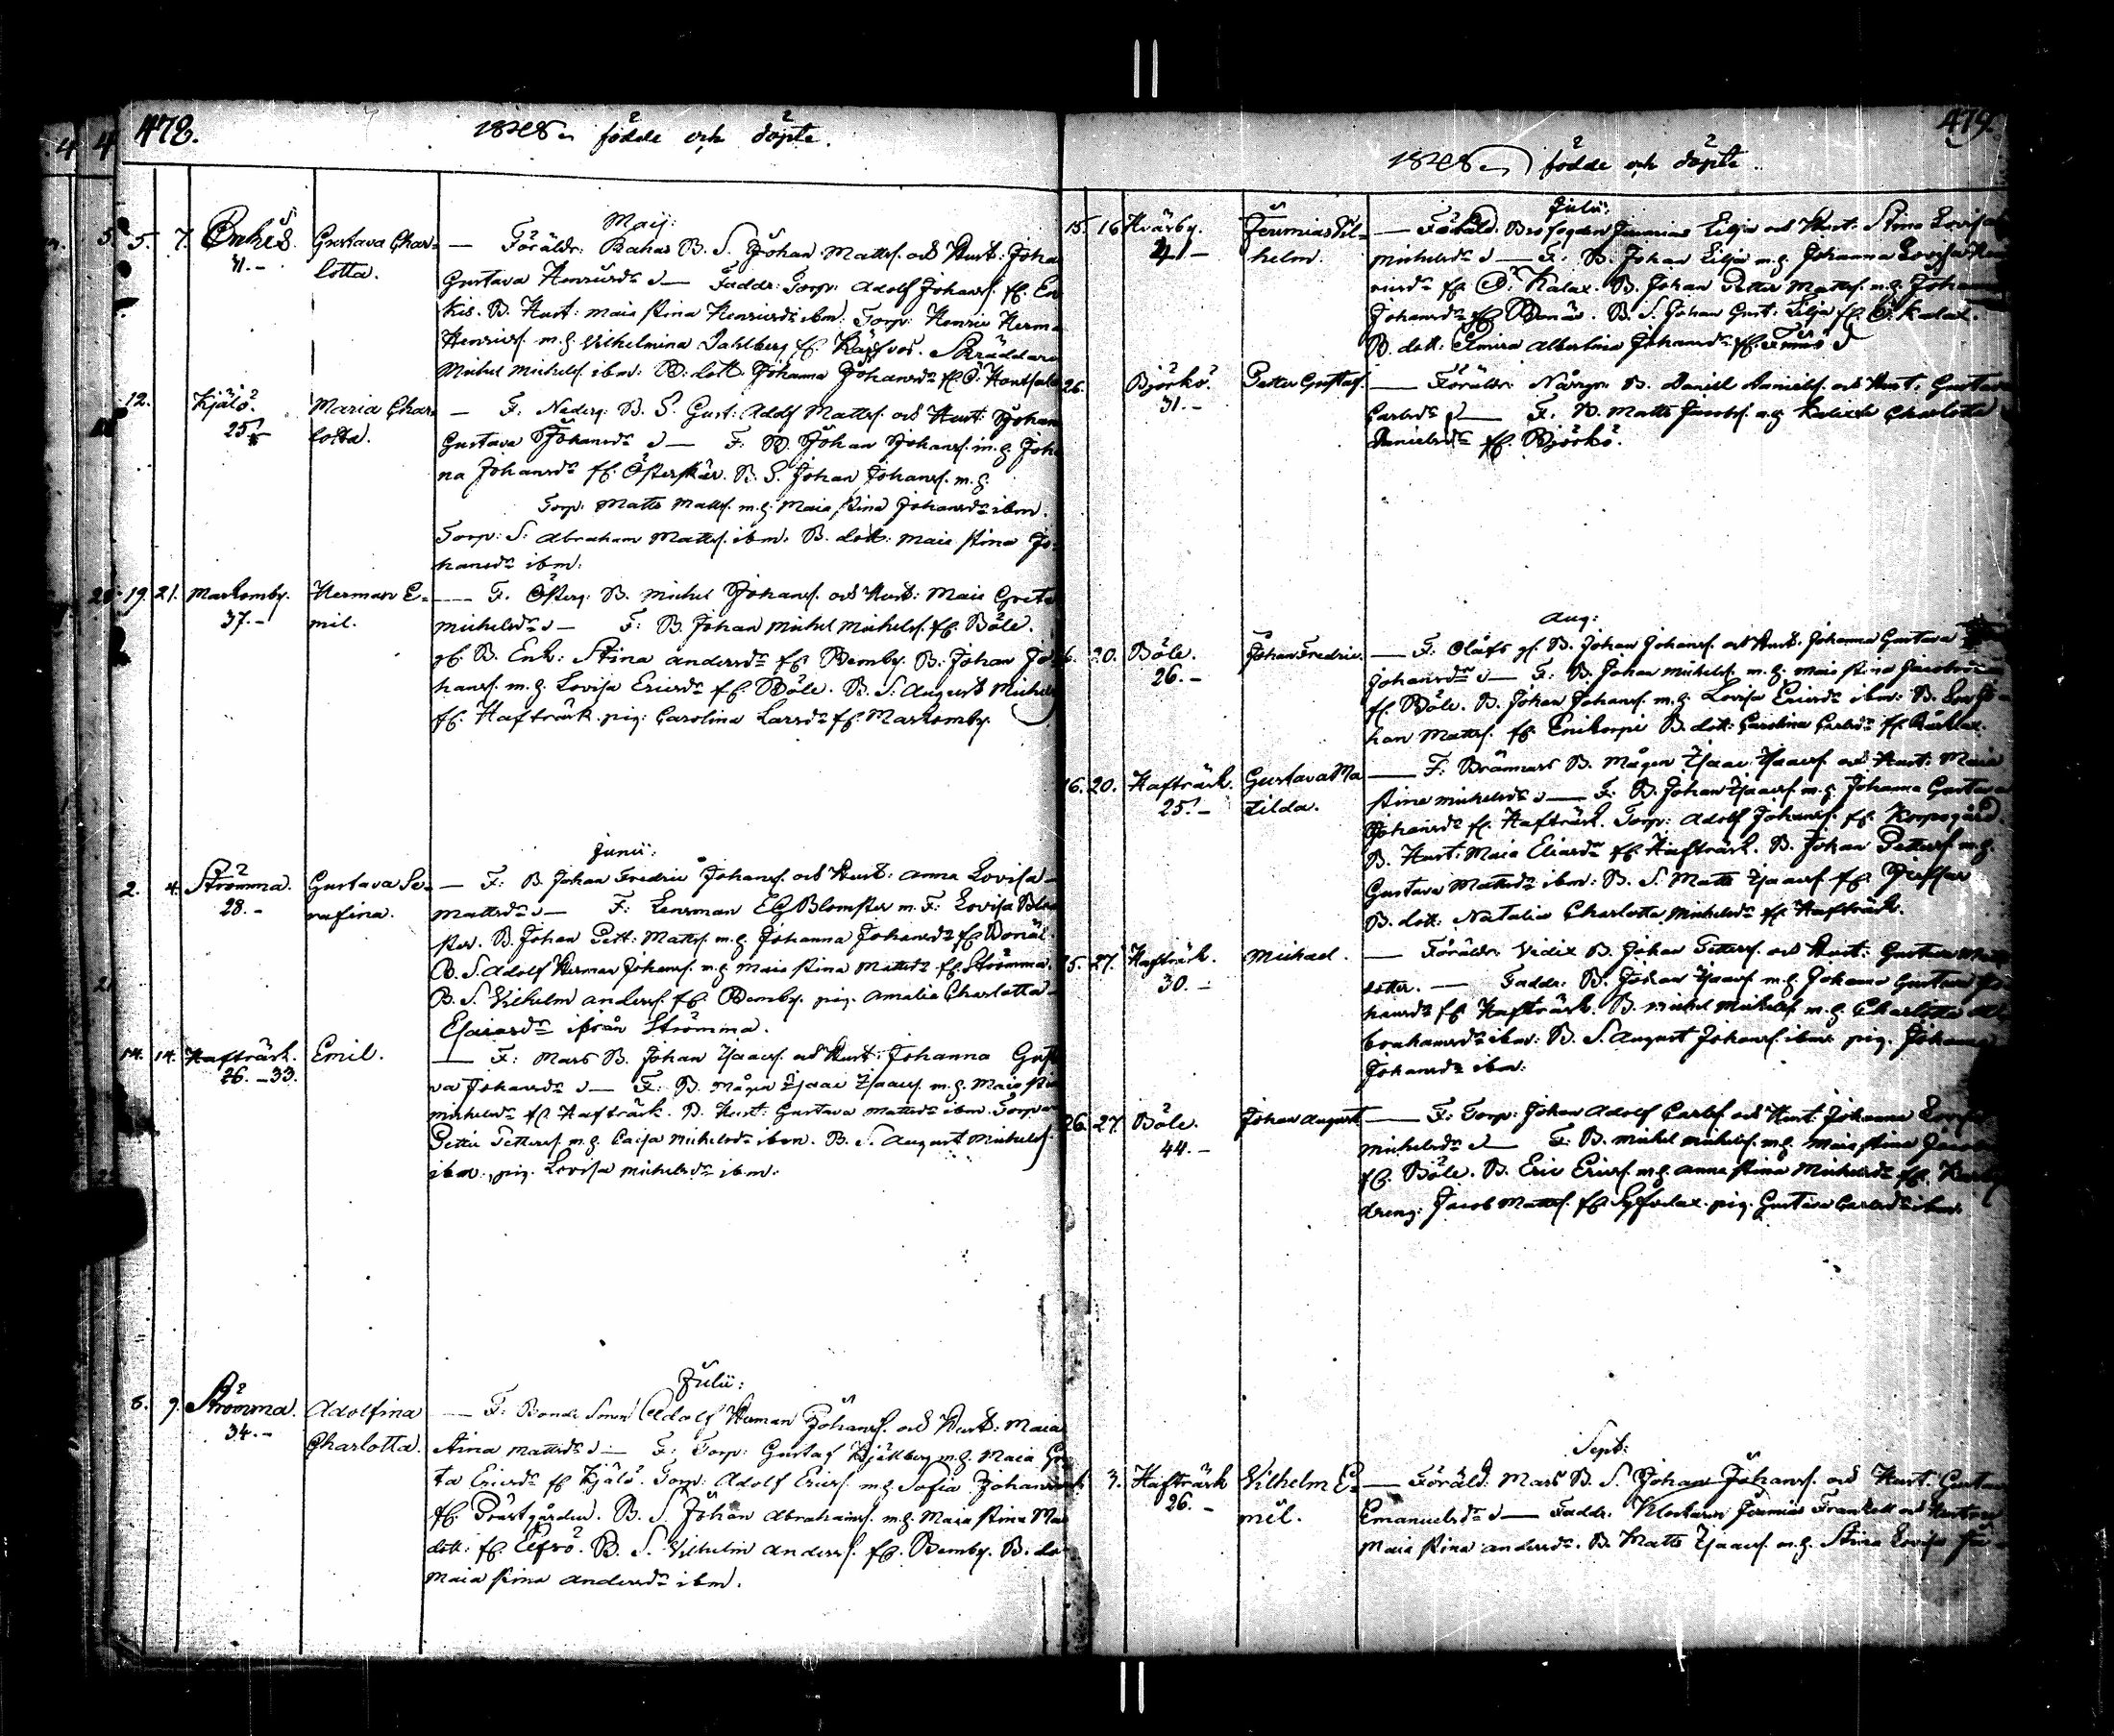 478.
1848 födde och döpte.
Maij:
5. 7. Enkis. Gustava Char= — Föräldr: Bakas B. S. Johan Matts. och Hust: Joha
31.- lotta. Gustava Henricsdr — Faddr: Torp: Adolf Johans. fr. En
kis. B. Hust: Maia Stina Henricsdr ibm: Torp: Henric Herma
Henrics. m. h. Vilhelmina Dahlberg fr. Skräddare
Michel Michels. ibm: B. dott: Johanna Johansdr fr.
12. Kjälö. Maria Char — F. Nederg: B. S. Gust: Adolf Matts. och Hust: Johan
25.- lotta. Gustava Johansdr — F: B. Johan Johans. m. h. Joh
na Johansdr fr. Österskär. B. S. Johan Johans. m. h.
Torp: Matts Matts. m. h. Maia Stina Johansdr ibm.
Torp: S: Abraham Matts. ibm. B. dott: Maia Stina Jo
hansdr ibm:
19. 21. Markomby. Herman E= — F. Österg: B. Michel Johans. och Hust: Maia Greta
37.- mil. Michelsdr — F: B. Johan Michel Michels. fr. Böle.
gf. B. Enk: Stina Andersdr fr. Bemby. B. Johan Jo
hans. m. h. Lovisa Ericsdr fr. Böle. B. S. August Michels
fr. Hafträsk. pig: Carolina Larsdr fr. Markomby.
Junii:
2. 4. Strömma. Gustava Se= — F: B. Johan Fredric Johans. och Hust: Anna Lovisa
28.- rafina. Mattsdr — F: Lensman EG Blomster m. F: Lovisa Blom
ster. B. Johan Pett: Matts. m. h. Johanna Johansdr fr. Bonäs.
B. S. Adolf Herman Johans. m. h. Maia Stina Mattsdr fr. Strömma.
B. S. Vilhelm Anders. fr. Bemby. pig. Amalia Charlotta
Esaiasdr ifrån Strömma.
14. 14. Hafträsk. Emil. — F: Mars B. Johan Isaacs. och Hust: Johanna Gusta
26.-33. va Johansdr — F: B. Mågen Isaac Isaacs. m. h. Maia Stina
Michelsdr fr. Hafträsk. B. Hust: Gustava Mattsdr ibm. Torp
Petter Petters. m. h. Caisa Michelsdr ibm. B. S. August Michels.
ibm. pig. Lovisa Michelsdr ibm:
Julii:
6. 9. Strömma. Adolfina — F: Bonde Sonen Adolf Herman Johans. och Hust: Maia
34.- Charlotta. Stina Mattsdr — F: Torp: Gustaf m. h. Maia Gre
ta Ericsdr fr. Kjälö. Torp: Adolf Erics. m. h. Sofia Johansdr
fr. Prästgården. B. S. Johan Abrahams. m. h. Maia Stina Mats
dott: fr. Elfsö. B. S. Vilhelm Anders. fr. Bemby. B. do
Maia Stina Andersdr ibm.
479.
1848 födde och döpte.
Julii:
15. 16 Kvärby. Jeremias Vil= — Föräld: Brofogden Jeremias Lilja och Hust: Stina Lovisa
41- helm. Michelsdr — F: B. Johan Lilja m. h. Johanna Lovisa Hen
ricsdr fr. Ö. Kalax. B. Johan Petter Matts. m. h. Johanna
Johansdr fr. Bonäs. B. S. Johan Gust: Lilja fr. Ö. Kalax.
B. dott: Elmira Albertina Johansdr fr.
26. Björkö. Petter Gustaf. — Föräldr: B. Daniel Daniels. och Hust: Gustava
31.- Carlsdr — F. B. Matts Jacobs. m. h. Charlotta
Danielsdr fr. Björkö.
Aug:
20. Böle. Johan Fredric. — F: Olofs gf. B. Johan Johans. och Hust. Johanna Gustava
26.- Johansdr — F: B. Johan Michels. m. h. Maia Stina Jacobsdr
fr. Böle. B. Johan Johans. m. h. Lovisa Ericsdr ibm: B. Son Jo
han Matts. fr. B. dott: Carolina Carlsdr fr.
16. 20. Hafträsk. Gustava Ma — F: Brännars B. Mågen Isaac Isaacs. och Hust: Maia
25.- tilda. Stina Michelsdr — F: B. Johan Isaacs. m. h. Johanna Gustava
Johansdr fr. Hafträsk. Torp: Adolf Johans. fr. Korpogård.
B. Hust: Maia Eliasdr fr. Hafträsk. B. Johan Petters. m. h.
Gustava Mattsdr ibm: B. S. Matts Isaacs. fr.
B. dott: Natalia Charlotta Michelsdr fr. Hafträsk.
25. 27. Hafträsk. Michael. — Föräldr: Vidix B. Johan Petters. och Hust: Gustava Mats
30.- dotter. — Faddr: B. Johan Isaacs m. h. Johanna Gustava Jo
hansdr fr. Hafträsk. B. Michel Michels. m. h. Charlotta A
brahamsdr ibm: B. S. August Johans. ibm. pig. Johanna
Johansdr ibm:
26. 27. Böle. Johan August — F: Torp: Johan Adolf Carls. och Hust: Johanna Lovisa
44.- Michelsdr — F: B. Michel Michels. m. h. Maia Stina Jacobs
fr. Böle. B. Eric Erics. m. h. Anna Stina Michelsdr fr.
dreng: Jacob Matts. fr. pig. Gustava Carlsdr ibm.
Sept:
3. Hafträsk Vilhelm E= — Föräld: Mars B. S. Johan Johans. och Hust: Gustava
26.- mil. Emanuelsdr — Faddr. Klockaren Jeremias Franzell och Hustru
Maia Stina Andersdr. B. Matts Isaacs. m. h. Stina Lovisa